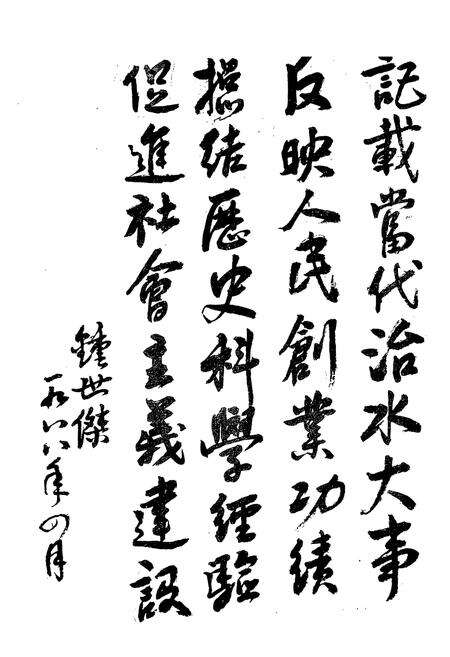 記載當代治水大事
反映人民創業功績
總結歷史科學經驗
促進社會主義建設
鍾世傑
一九八八年四月